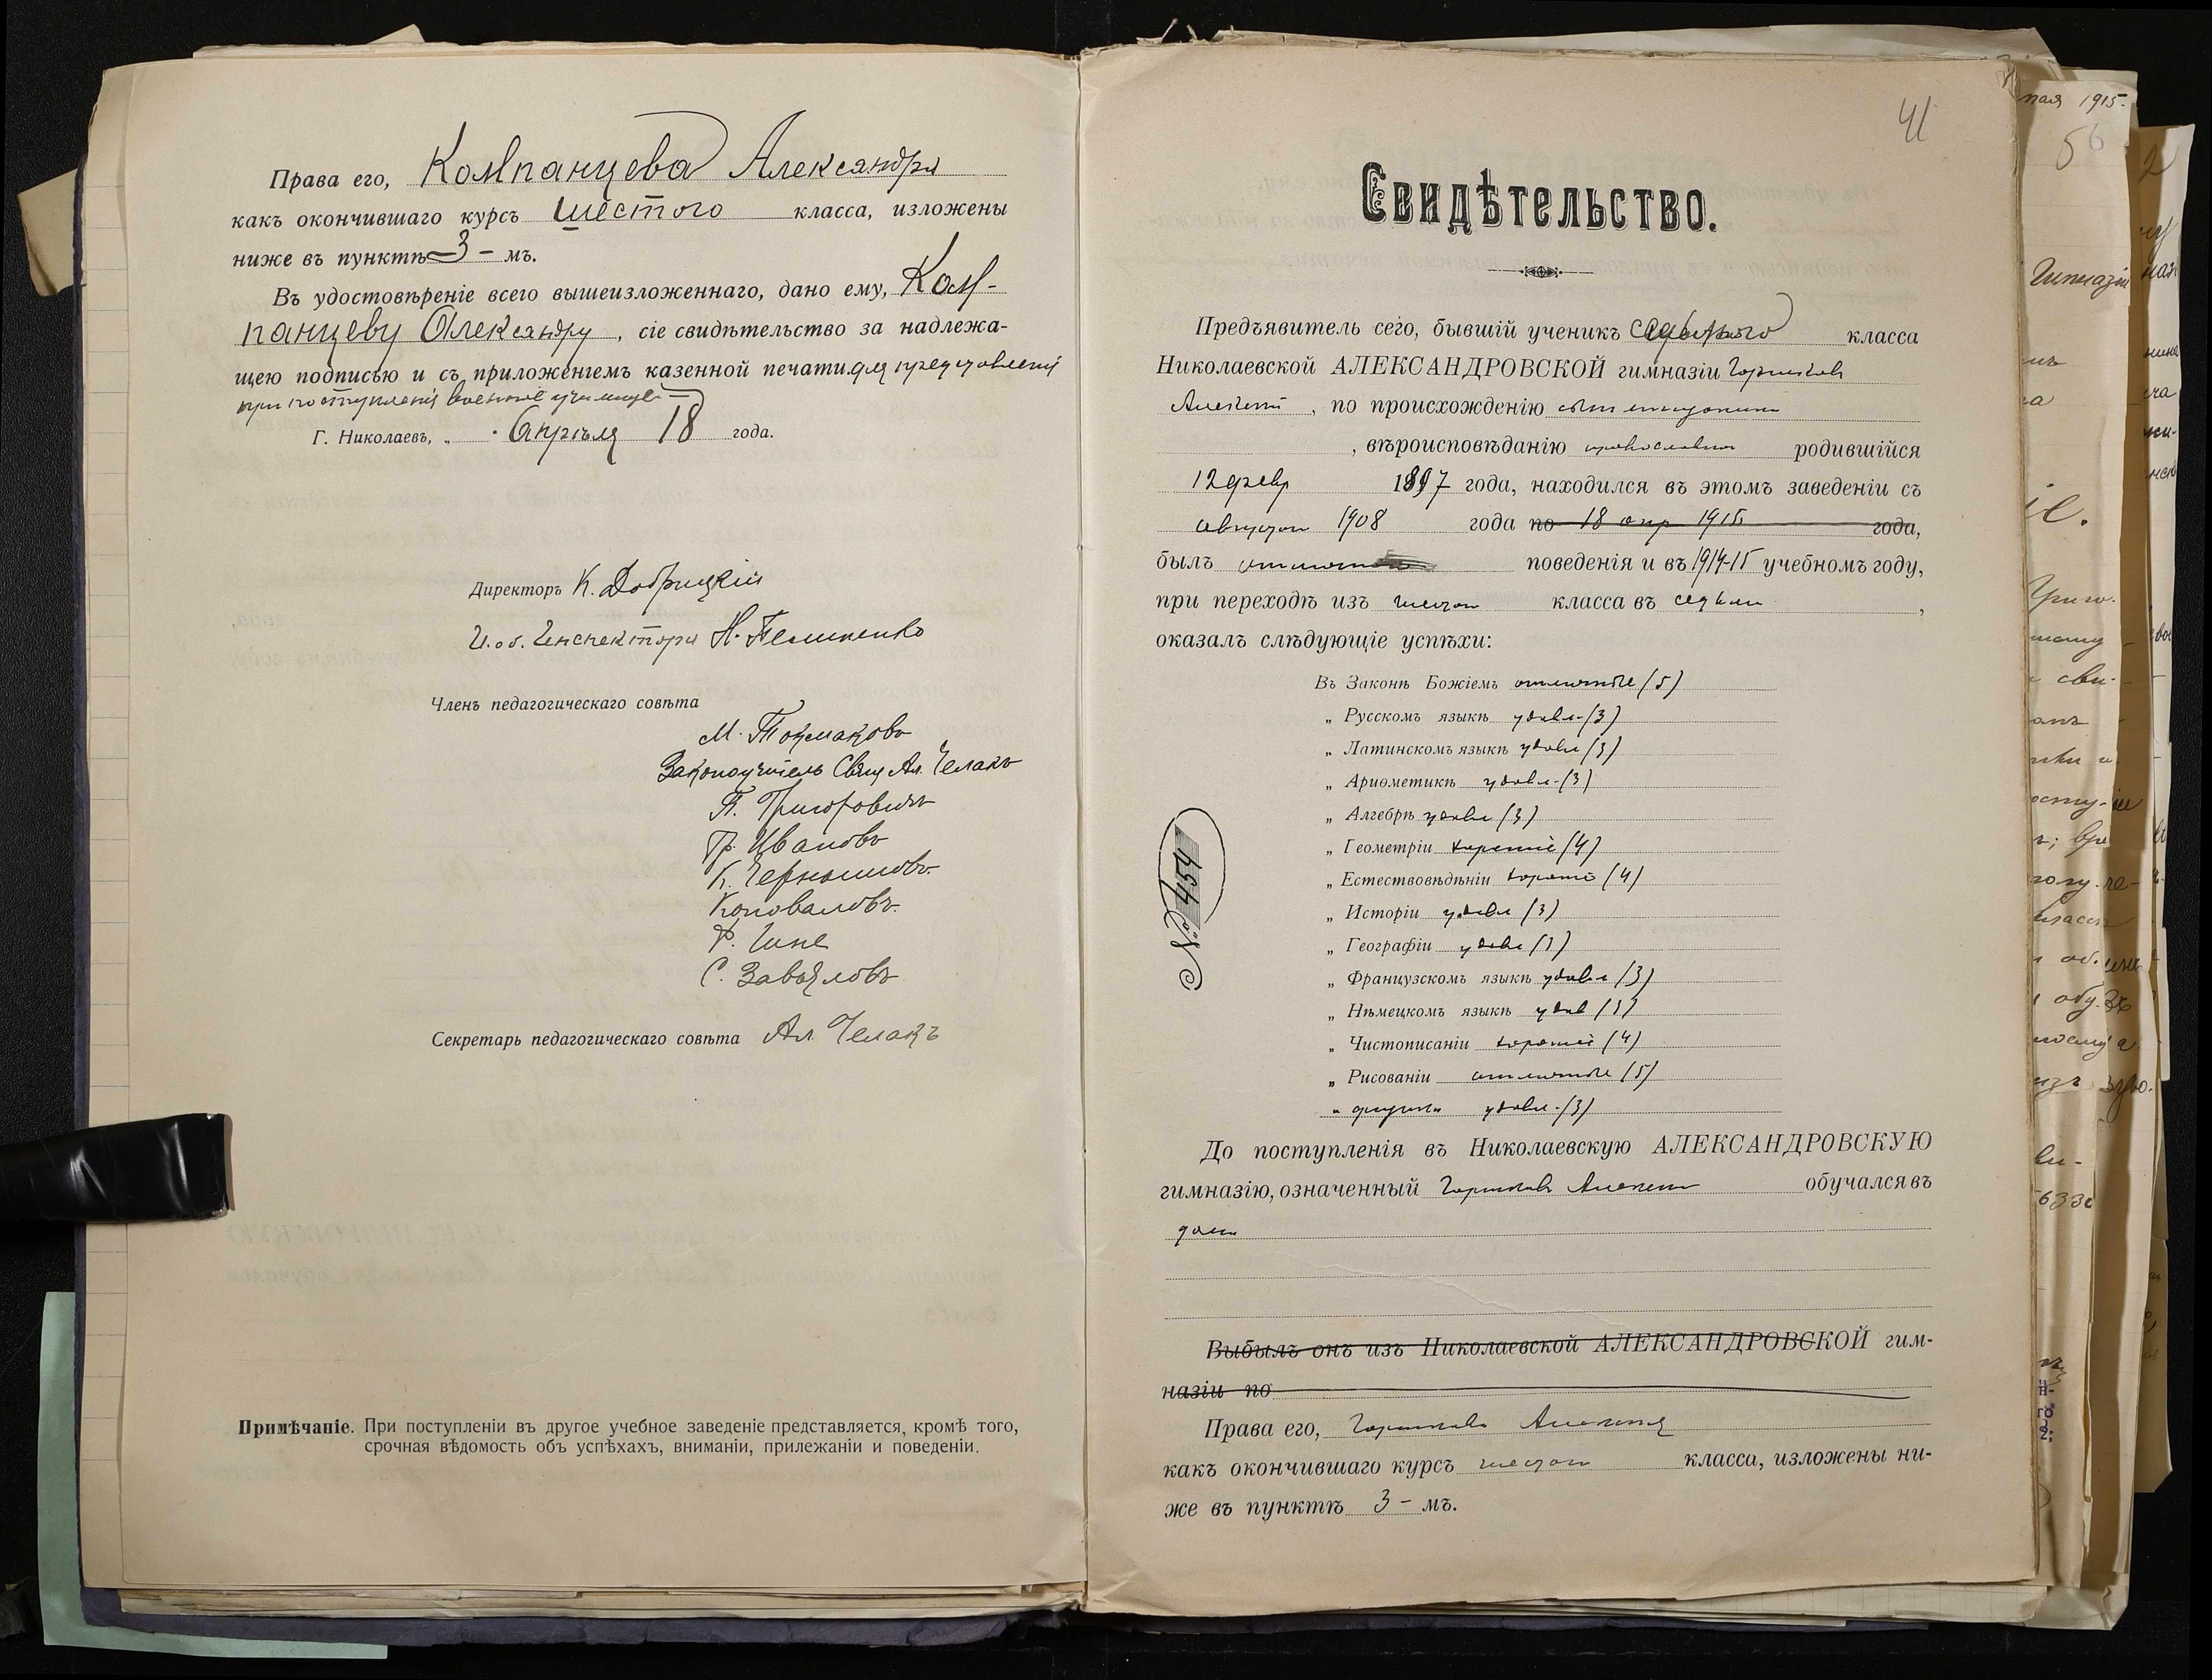 Права его, Компанцева Александра
какъ окончившаго курсъ шестого класса, изложены
ниже въ пунктѣ 3 - мъ.
Въ удостовѣреніе всего вышеизложеннаго, дано ему, Ком-
панцеву Александру, сіе свидѣтельство за надлежа-
щею подписью и съ приложеніемъ казенной печати для представленія
при поступленіи военное училище
Г. Николаевъ, „ Апрѣля 18 года.
Директоръ К. Добрицкій
И. об. Инспектора Н.
Членъ педагогическаго совѣта
М. Токмаковъ
Законоучитель Свящ Ал. Челакъ
П. Григоровичъ
Гр. Ивановъ
К.
Коноваловъ
С. Завьяловъ
Секретарь педагогическаго совѣта Ал. Челакъ
Примѣчаніе. При поступленіи въ другое учебное заведеніе представляется, кромѣ того,
срочная вѣдомость объ успѣхахъ, вниманіи, прилежаніи и поведеніи.
41
Свидѣтельство.
Предъявитель сего, бывшій ученикъ седьмого класса
Николаевской АЛЕКСАНДРОВСКОЙ гимназіи Горшковъ
Алексѣй, по происхожденію сынъ мѣщанина
, вѣроисповѣданію православнаго родившійся
12 февр 1897 года, находился въ этомъ заведеніи съ
августа 1908 года по 18 апр 1915 года,
былъ отличнаго поведенія и въ 1914-15 учебномъ году,
при переходѣ изъ шестого класса въ седьмой,
оказалъ слѣдующіе успѣхи:
Въ Законѣ Божіемъ отличные (5)
„ Русскомъ языкѣ удовл. (3)
„ Латинскомъ языкѣ удовл (3)
„ Ариѳметикѣ удовл. (3)
„ Алгебрѣ удовл (3)
„ Геометріи хорошіе (4)
„ Естествовѣдѣніи хорошіе (4)
„ Исторіи удовл (3)
„ Географіи удовл (3)
„ Французскомъ языкѣ удовл (3)
„ Нѣмецкомъ языкѣ удовл (3)
„ Чистописаніи хорошіе (4)
„ Рисованіи отличные (5)
„ физика удовл. (3)
№ 454
До поступленія въ Николаевскую АЛЕКСАНДРОВСКУЮ
гимназію, означенный Горшковъ Алексѣй обучался въ
дома
Выбылъ онъ изъ Николаевской АЛЕКСАНДРОВСКОЙ гим-
назіи по
Права его, Горшкова Алексѣя
какъ окончившаго курсъ шестого класса, изложены ни-
же въ пунктѣ 3 - мъ.
мая 1915.
56
Гимназіи